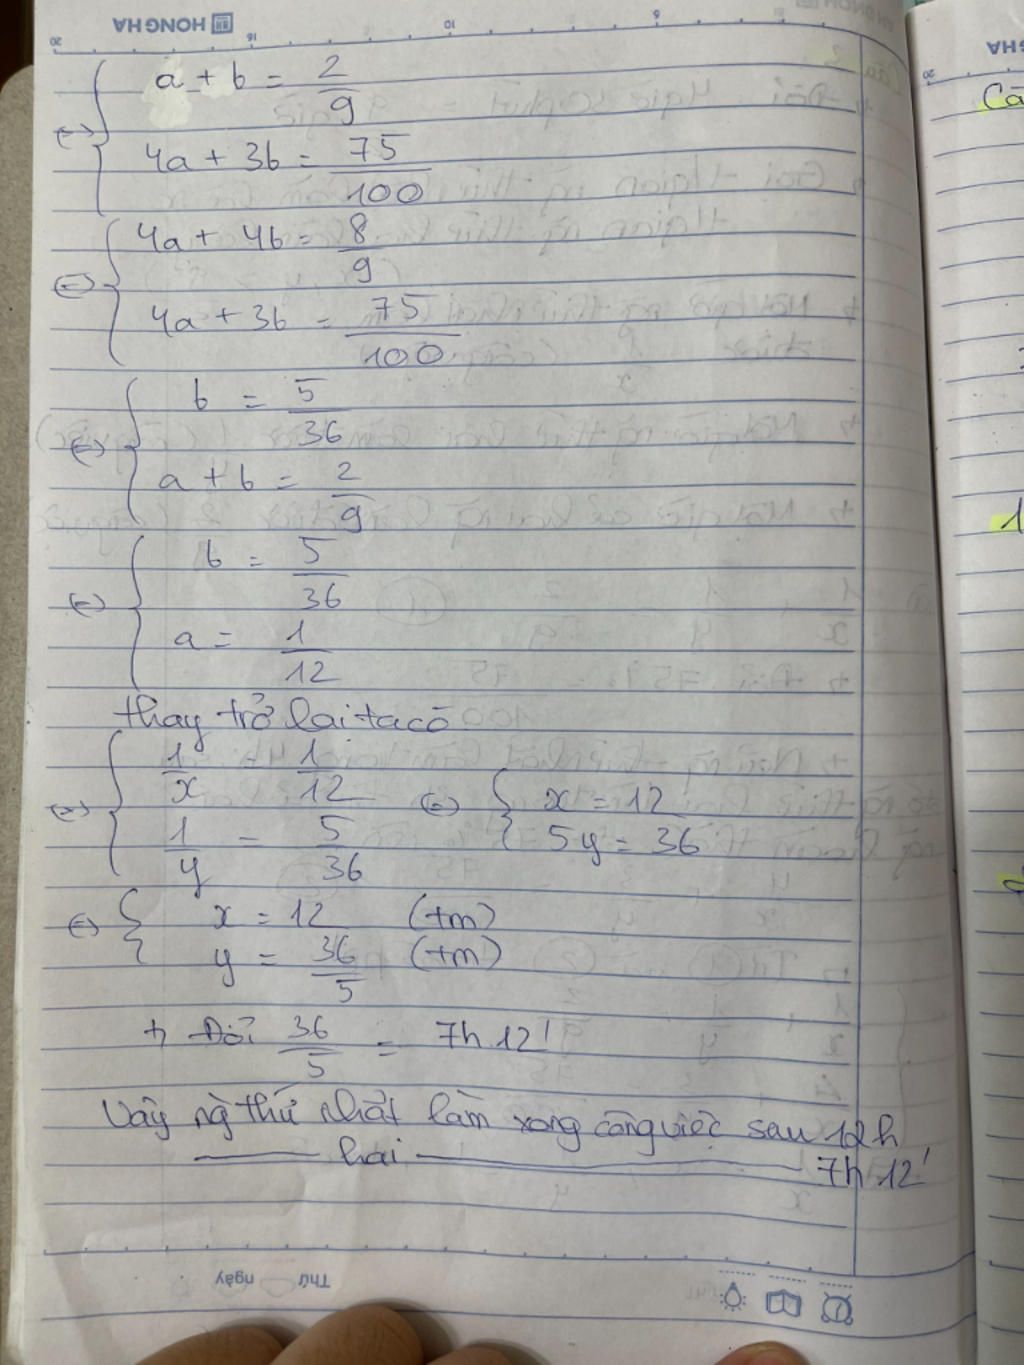 HONG HA
20
15
10
5
a + b = 2/9
(=) 4a + 3b = 75/100
4a + 4b = 8/9
(=) 4a + 3b = 75/100
b = 5/36
(=) a + b = 2/9
b = 5/36
(=) a = 1/12
thay trở lại ta có
1/x 1/12
(=) (=) x = 12
1/y = 5/36 5y = 36
(=) x = 12 (tm)
y = 36/5 (tm)
+, Đổi 36/5 = 7h 12'
Vậy ng thứ nhất làm xong công việc sau 12h
hai 7h 12'
Thứ ngày
HA
20
Câ
1